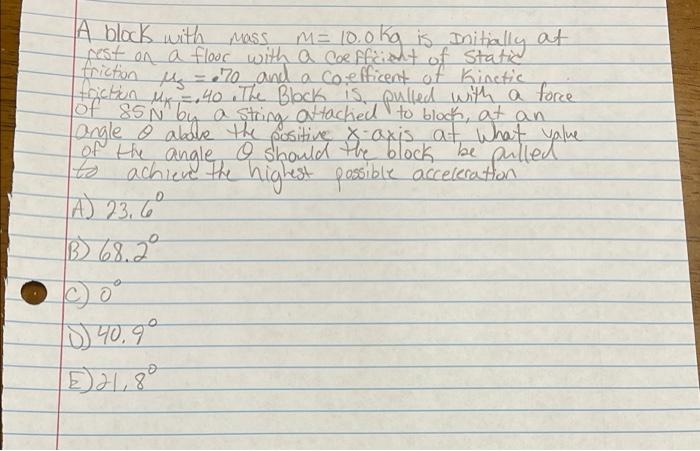 A block with mass m = 10.0 kg is Initially at
rest on a floor with a coefficient of static
friction μs = .70 and a coefficent of Kinetic
friction μk = .40. The Block is pulled with a force
of 85N by a string attached to block, at an
angle θ above the positive x-axis at what value
of the angle θ should the block be pulled
to achieve the highest possible acceleration
A) 23.6°
B) 68.2°
C) 0°
D) 40.9°
E) 21.8°